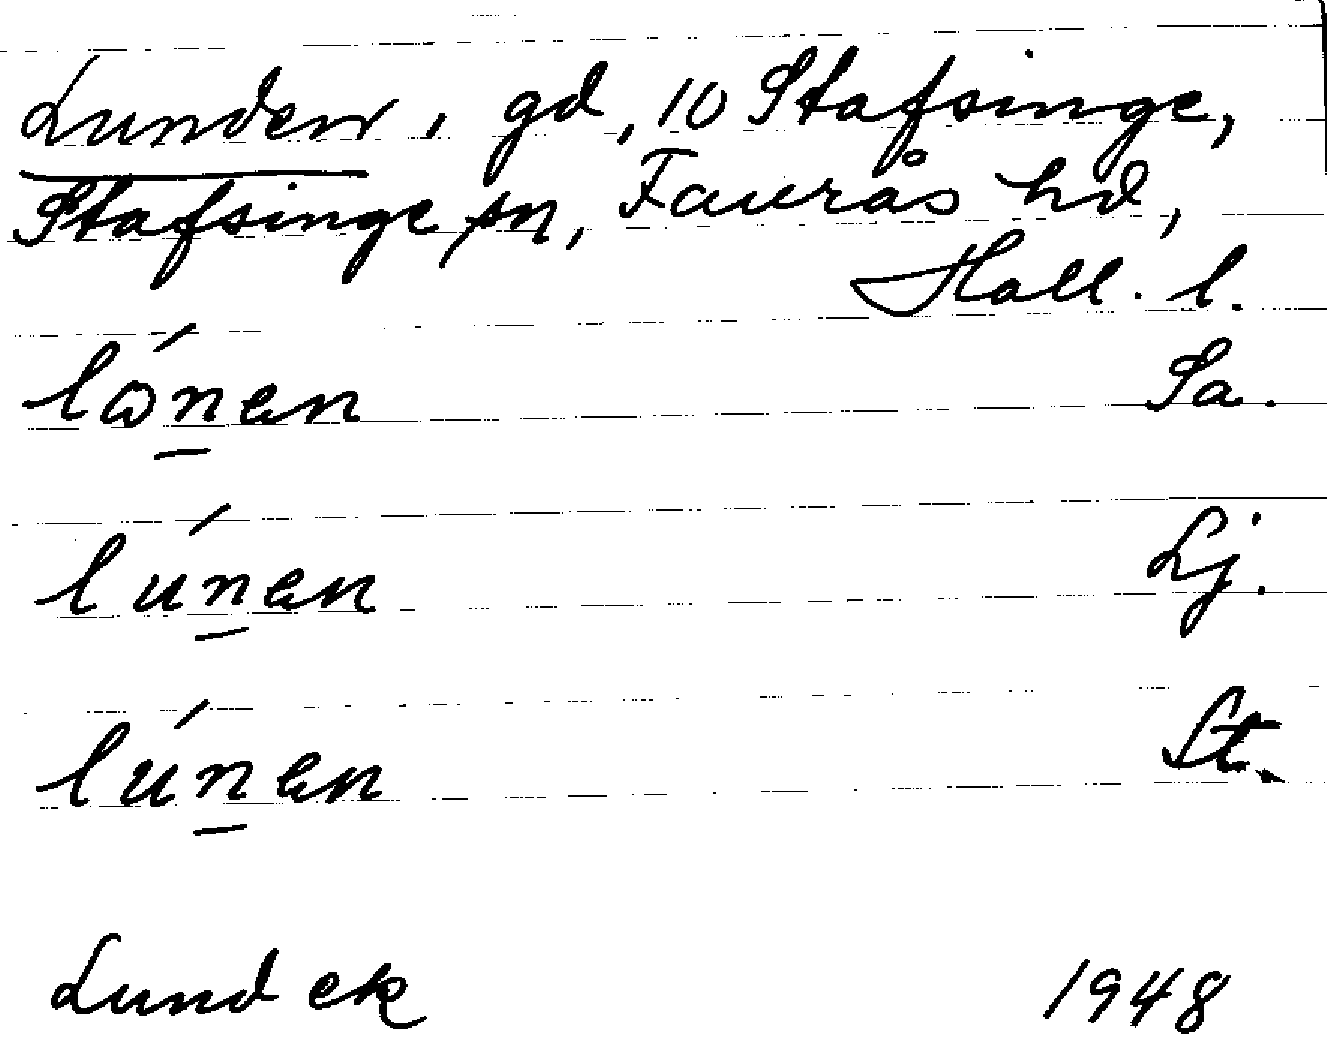 Lunden, gd, 10 Stafsinge,
Stafsinge sn, Faurås hd,
Hall. l.
lɷ́n̠ən Sa.
lún̠ən Lj.
lún̠ən St.
Lund ek 1948